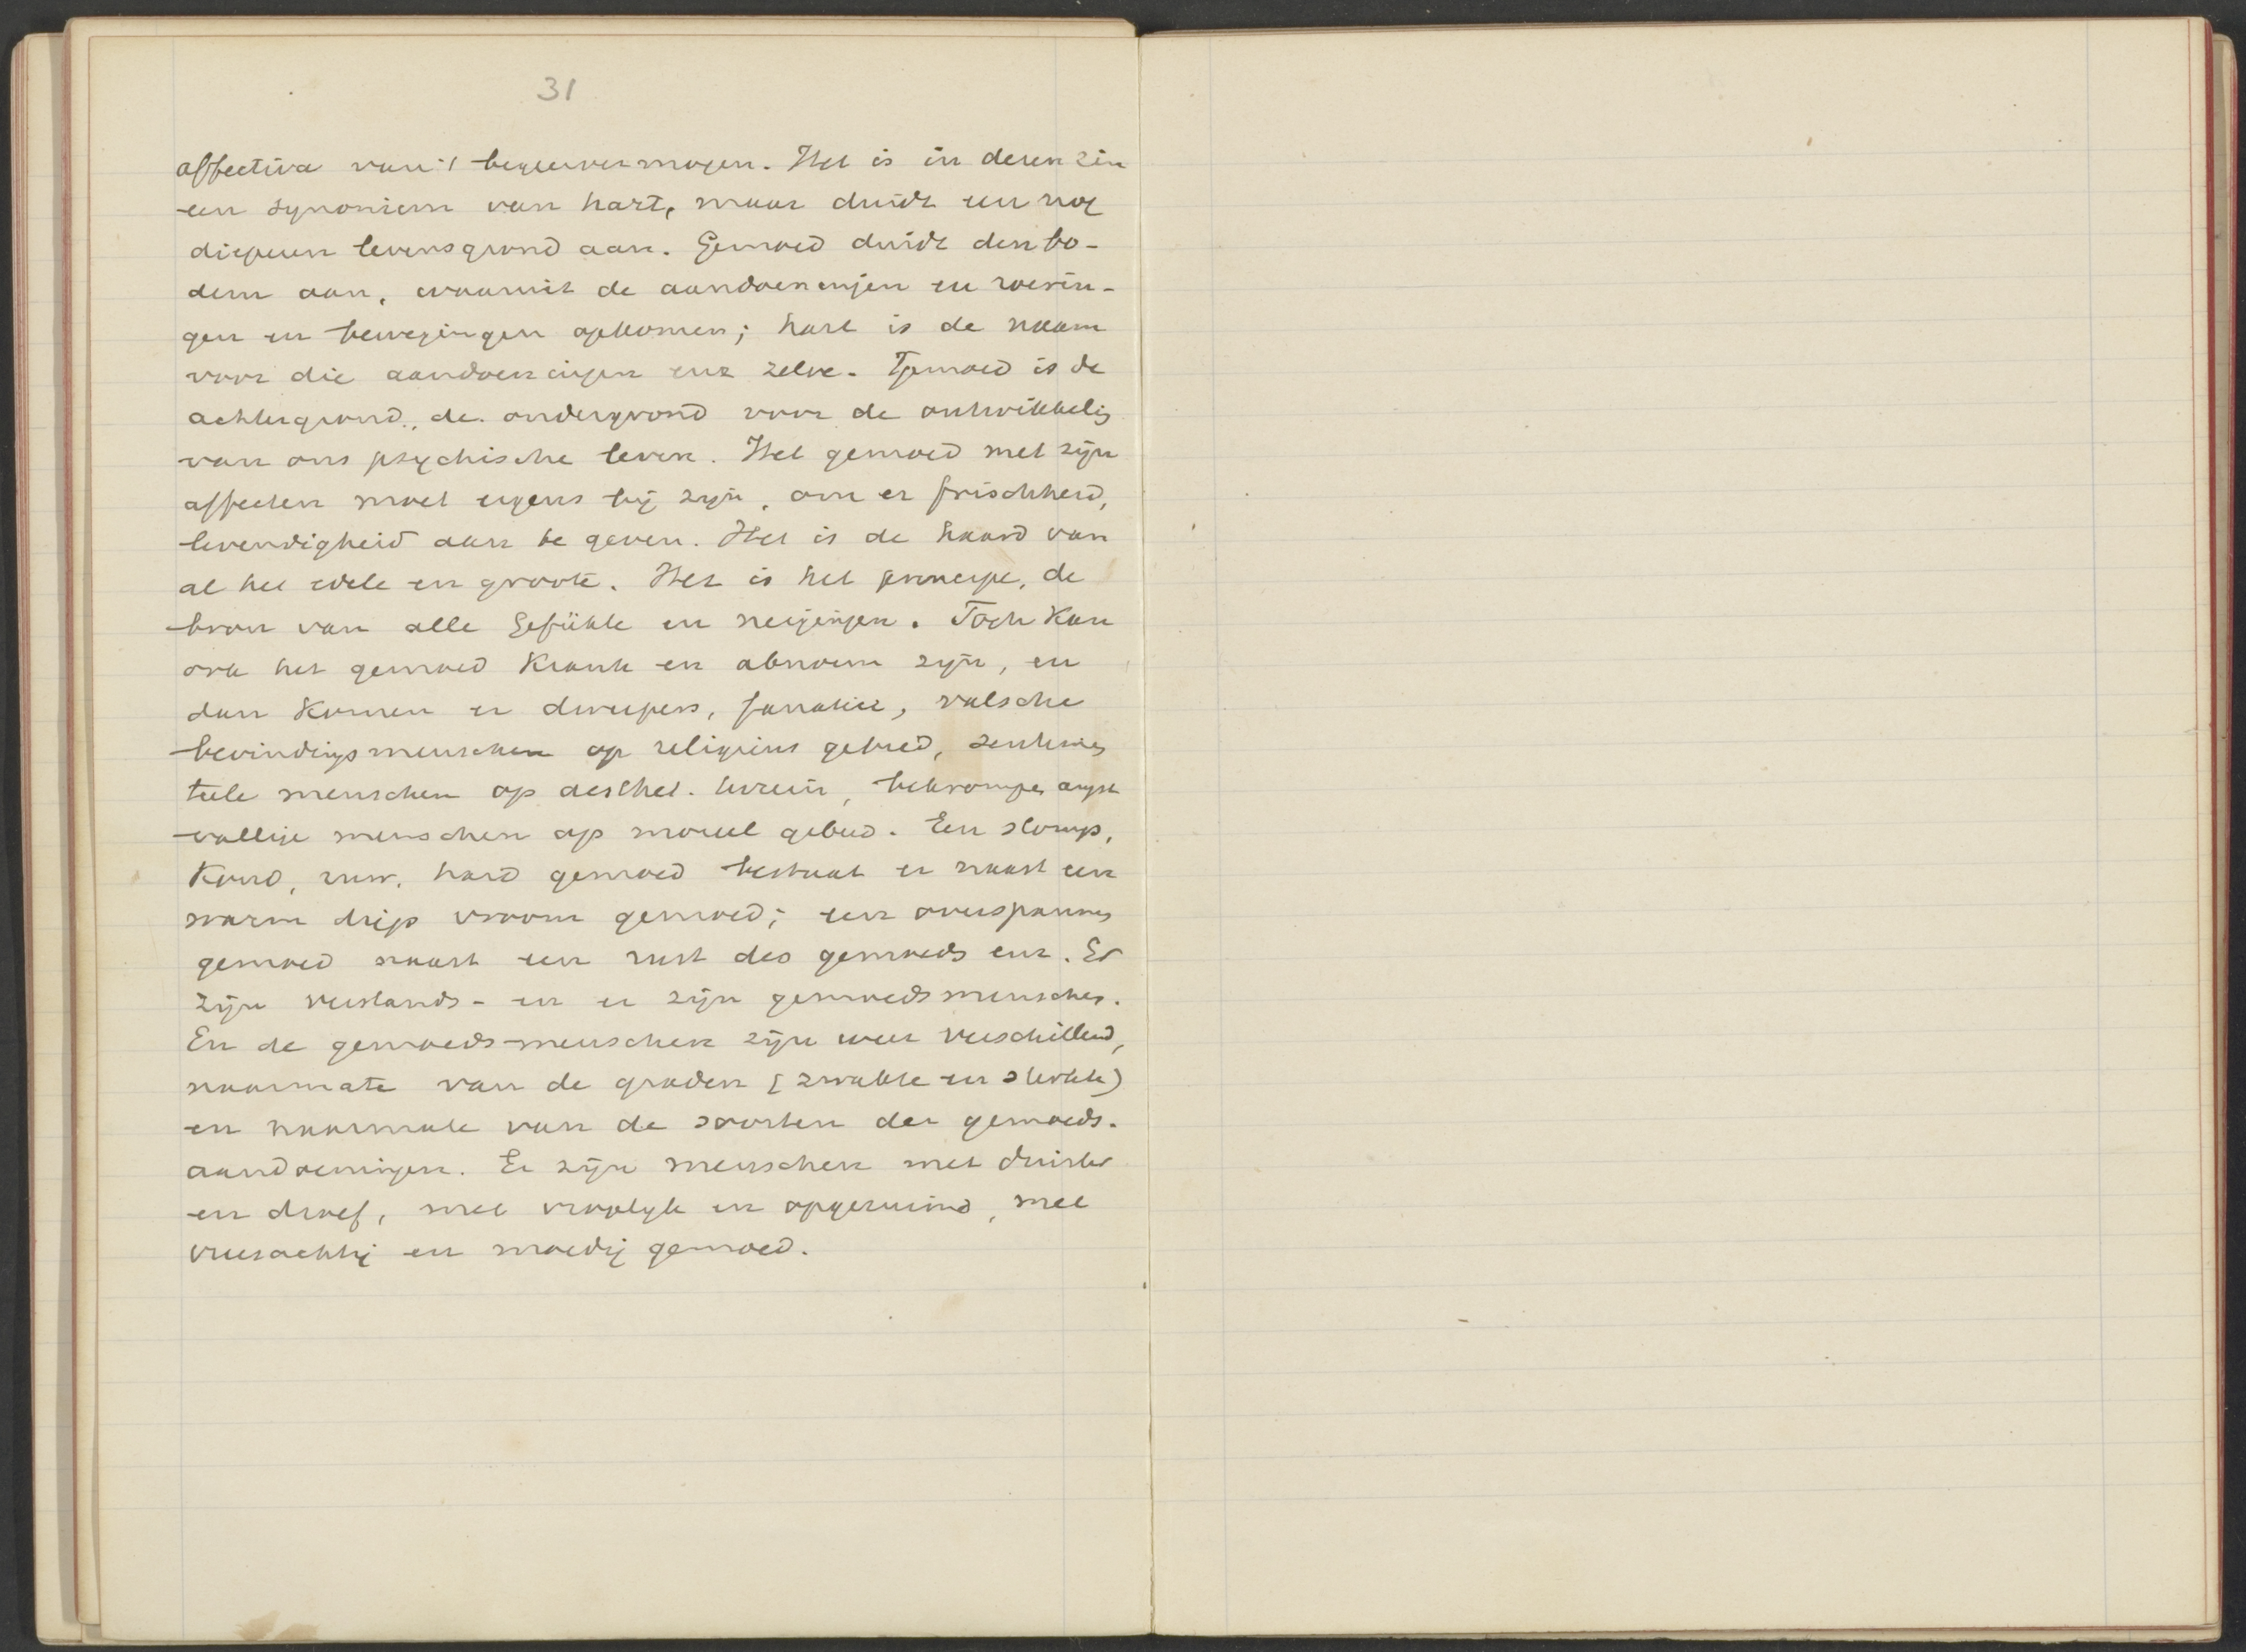 31
affectiva van 't begeervermogen. Het is in dezen zin
een synoniem van hart, maar duidt een nog
dieperen levensgrond aan. Gemoed duidt den bo-
dem aan, waaruit de aandoeningen en roerin-
gen en bewegingen opkomen; hart is de naam
voor die aandoeningen enz zelve. 't Gemoed is de
achtergrond, de ondergrond voor de ontwikkelig
van ons psychische leven. Het gemoed met zijn
affecten moet ergens bij zijn, om er frischheid,
levendigheid aan te geven. Het is de haard van
al het edele en groote. Het is het principe, de
bron van alle Gefühle en neigingen. Toch kan
ook het gemoed krank en abnorm zijn, en
dan komen er dweepers, fanatici, valsche
bevindingsmenschen op religieus gebied, sentimen
teele menschen op aesthet. terrein, bekrompen angst
vallige menschen op moreel gebied. Een stomp,
koud, ruw, hard gemoed bestaat er naast een
warm diep vroom gemoed; een overspannen
gemoed naast een rust des gemoeds enz. Er
zijn verstands- en er zijn gemoedsmenschen.
En de gemoeds-menschen zijn weer verschillend,
naarmate van de graden (zwakke en sterke)
en naarmate van de soorten der gemoeds-
aandoeningen. Er zijn menschen met duister
en droef, met vroolyk en opgeruimd, met
vreesachtig en moedig gemoed.